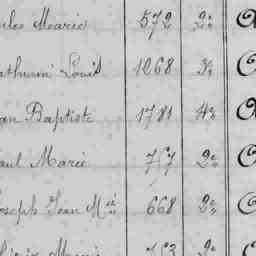 ules Marie 572 2e
athurin Louis 1268 3e
an Baptiste 1781 4e
aul Marie 757 2e
oseph Jean Mie 668 2e
Marie 753 2e